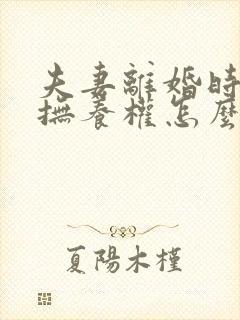 夫妻離婚時
撫養權怎麼
夏陽木槿